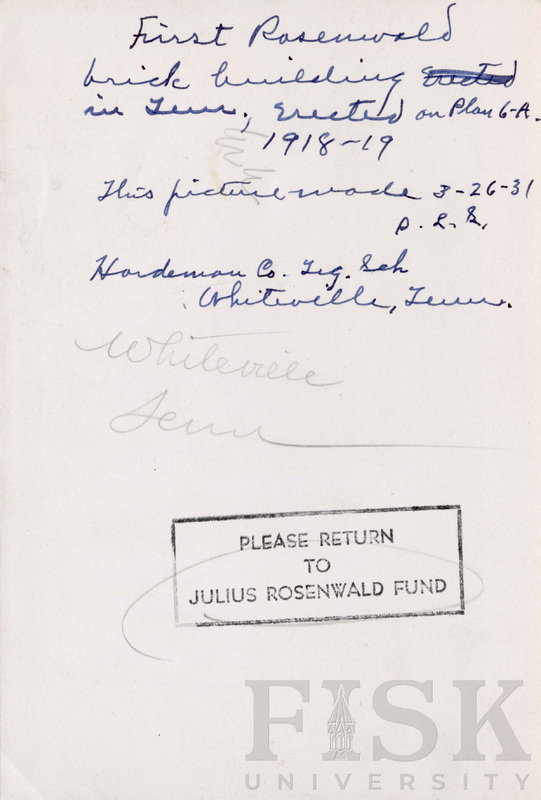 First Rosenwald
brick building Erected
in Tenn., Erected on Plan 6-A.
1918-19
This picture made 3-26-31
Hardeman Co. Trg. Sch
Whiteville, Tenn.
Whiteville
Tenn
PLEASE RETURN
TO
JULIUS ROSENWALD FUND
FISK
UNIVERSITY